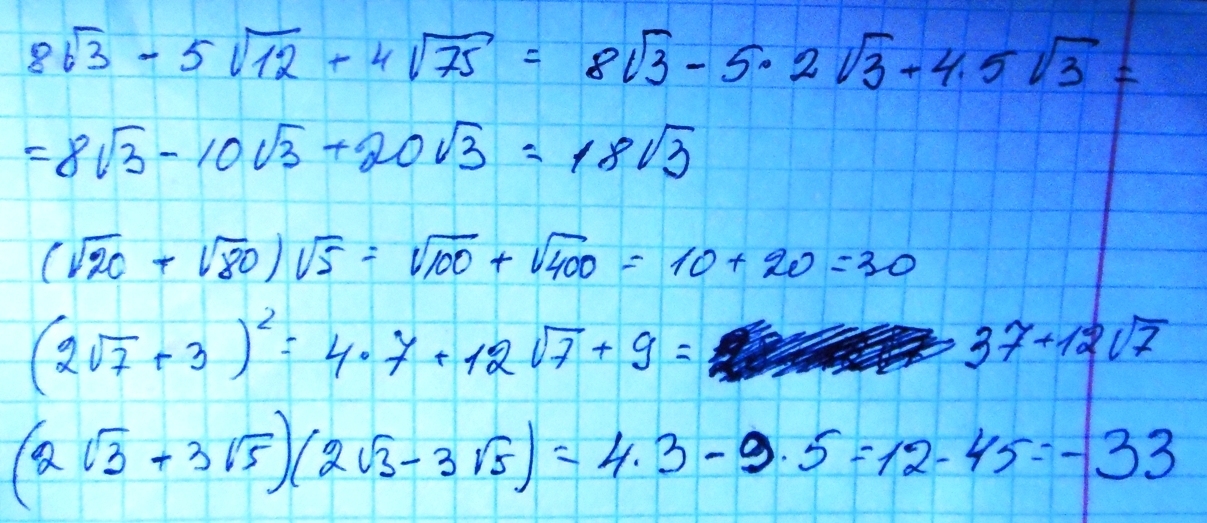 8√3 - 5√12 + 4√75 = 8√3 - 5·2√3 + 4·5√3 =
= 8√3 - 10√3 + 20√3 = 18√3
(√20 + √80)√5 = √100 + √400 = 10 + 20 = 30
(2√7 + 3)² = 4·7 + 12√7 + 9 = 37 + 12√7
(2√3 + 3√5)(2√3 - 3√5) = 4·3 - 9·5 = 12 - 45 = -33